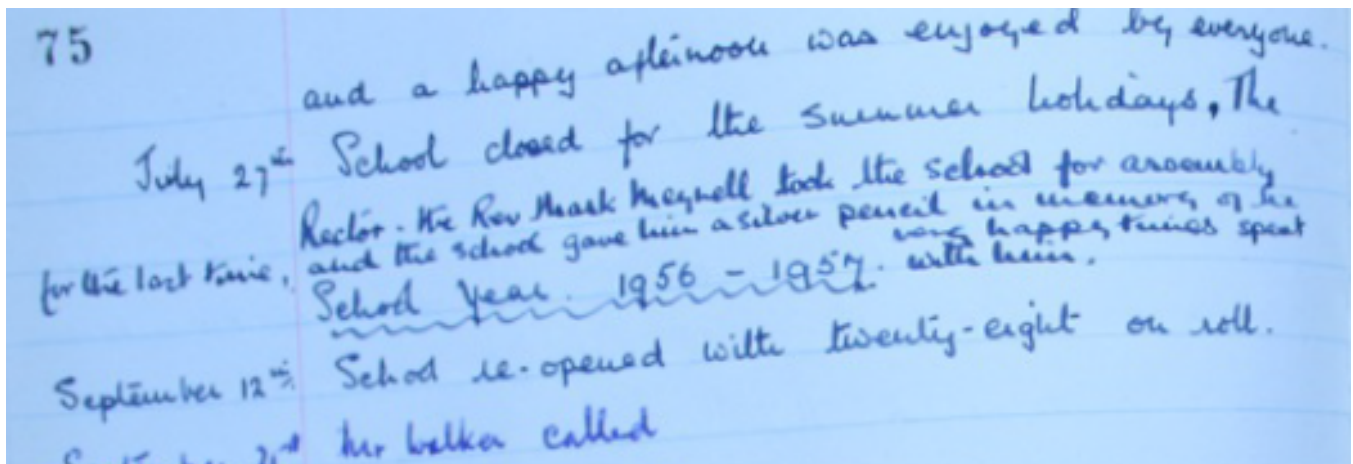 75
and a happy afternoon was enjoyed by everyone.
July 27th School closed for the summer holidays, The
Rector - the Rev Mark Meynell took the school for assembly
for the last time, and the school gave him a silver pencil in memory of the
very happy times spent
School Year. 1956 - 1957. with him.
September 12th School re-opened with twenty-eight on roll.
Mr Walker called